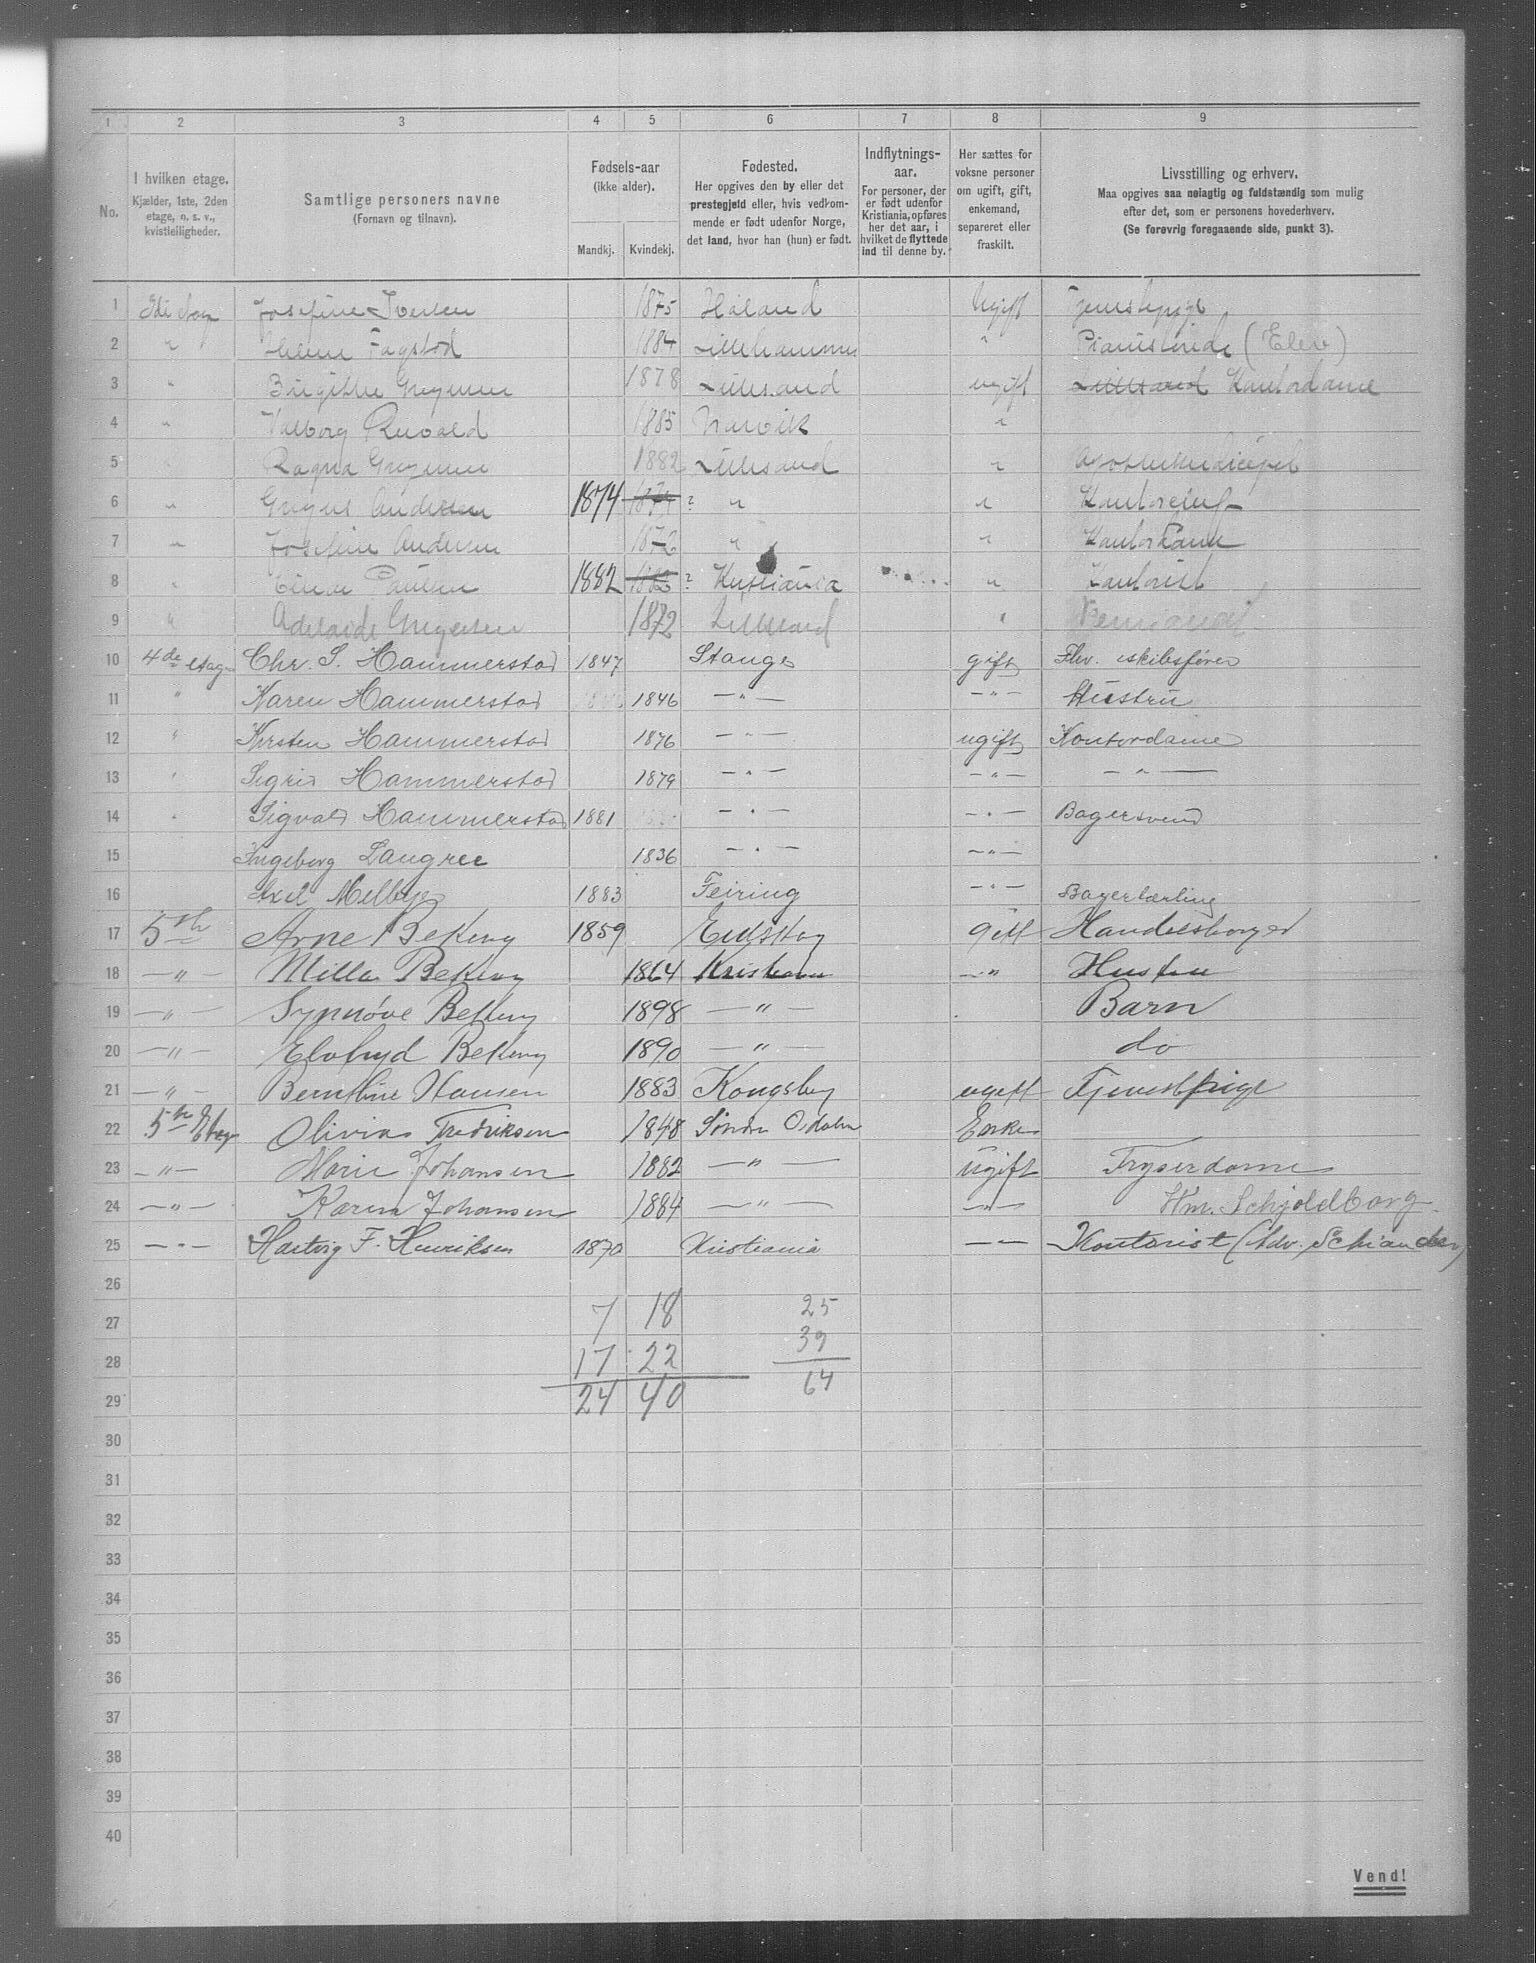 1 2 3 4 5 6 7 8 9
No.
I hvilken etage.
Kjælder, 1ste, 2den
etage, o. s. v.,
kvistleiligheder.
Samtlige personers navne
(Fornavn og tilnavn).
Fødsels-aar
(ikke alder).
Mandkj. Kvindekj.
Fødested.
Her opgives den by eller det
prestegjeld eller, hvis vedkom-
mende er født udenfor Norge,
det land, hvor han (hun) er født.
Indflytnings-
aar.
For personer, der
er født udenfor
Kristiania, opføres
her det aar, i
hvilket de flyttede
ind til denne by.
Her sættes for
voksne personer
om ugift, gift,
enkemand,
separeret eller
fraskilt.
Livsstilling og erhverv.
Maa opgives saa nøiagtig og fuldstændig som mulig
efter det, som er personens hovederhverv.
(Se forøvrig foregaaende side, punkt 3).
1 Josefine Iversen 1875 Høland Ugift
2 " Fagstad 1884 Lillehammer " Pianistinde (Elev)
3 " Birgitte 1878 Lillesand ugift Lillesand Kontordame
4 " Valborg 1885 Narvik "
5 Ragna 1882 Lillesand "
6 " Andersen 1874 ? " "
7 " Josefine Andersen 1872 " " Kontordame
8 " Einar Paulsen 1882 ? Kristiania " Kontorist
9 " Adelaide 1872 Lillesand "
10 4de etage Chr. S. Hammerstad 1847 Stange gift
11 " Karen Hammerstad 1846 — " — — " — Hustru
12 " Kirsten Hammerstad 1876 — " — ugift Kontordame
13 " Sigrid Hammerstad 1879 — " — — " — — " —
14 " Sigvald Hammerstad 1881 — " — — " — Bagersvend
15 Ingeborg Langree 1836 — " — — " —
16 Axel Melbye 1883 Feiring — " — Bagerlærling
17 5te Arne Bekkevy 1859 Eidskog gift Handelsborger
18 — " — Milla Bekkevy 1864 Kristiania — " Hustru
19 — " — Synnøve Bekkevy 1898 — " — Barn
20 — " — Bekkevy 1890 — " — do
21 — " — Berntine Hansen 1883 Kongsberg ugift Tjenestpige
22 5te Etage Olivia Fredriksen 1848 Søndre Odalen Enke
23 — " — Marie Johansen 1882 — " — Ugift Fryserdame
24 — " — Karen Johansen 1884 — " — — " — Hm. Schjoldborg
25 — " — Hartvig F. Henriksen 1870 Kristiania — " — Kontorist (Adv.
26
27 7 18 25
28 17 22 39
29 24 40 64
30
31
32
33
34
35
36
37
38
39
40
Vend!